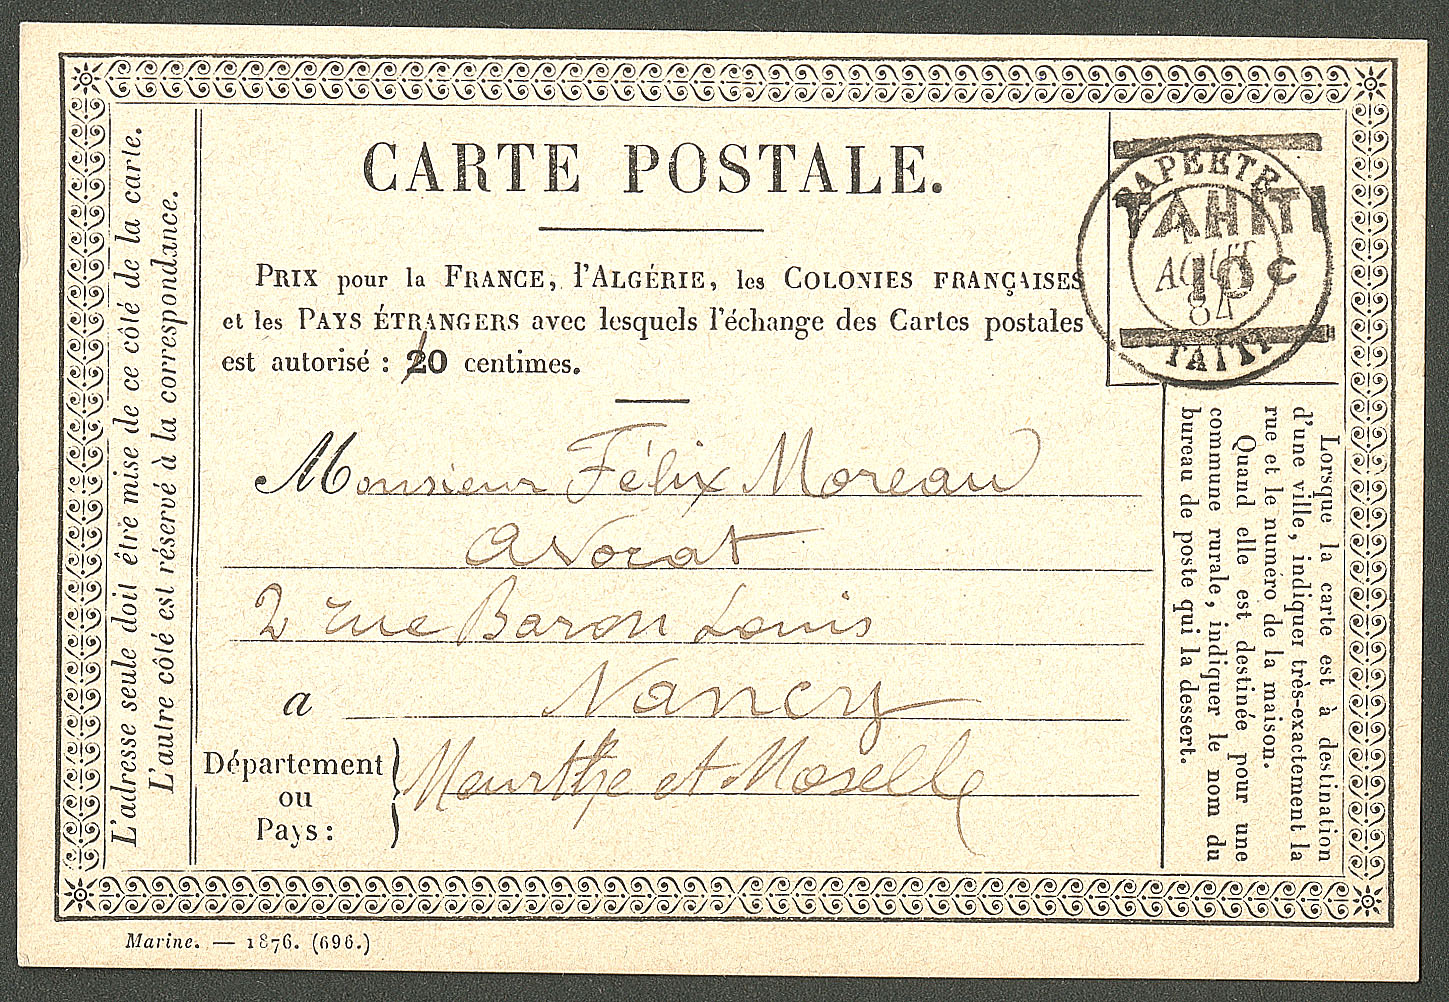 CARTE POSTALE.
PRIX pour la FRANCE, l'ALGÉRIE, les COLONIES FRANÇAISES
et les PAYS ÉTRANGERS avec lesquels l'échange des Cartes postales
est autorisé : 20 centimes.
TAHITI
10 c
PAPEETE
AOUT
84
TAITI
Monsieur Félix Moreau
Avocat
2 rue Baron Louis
a Nancy
Département
ou
Pays :
Meurthe et Moselle
L'adresse seule doit être mise de ce côté de la carte.
L'autre côté est réservé à la correspondance.
Lorsque la carte est à destination
d'une ville, indiquer très-exactement la
rue et le numéro de la maison.
Quand elle est destinée pour une
commune rurale, indiquer le nom du
bureau de poste qui la dessert.
Marine. — 1876. (696.)